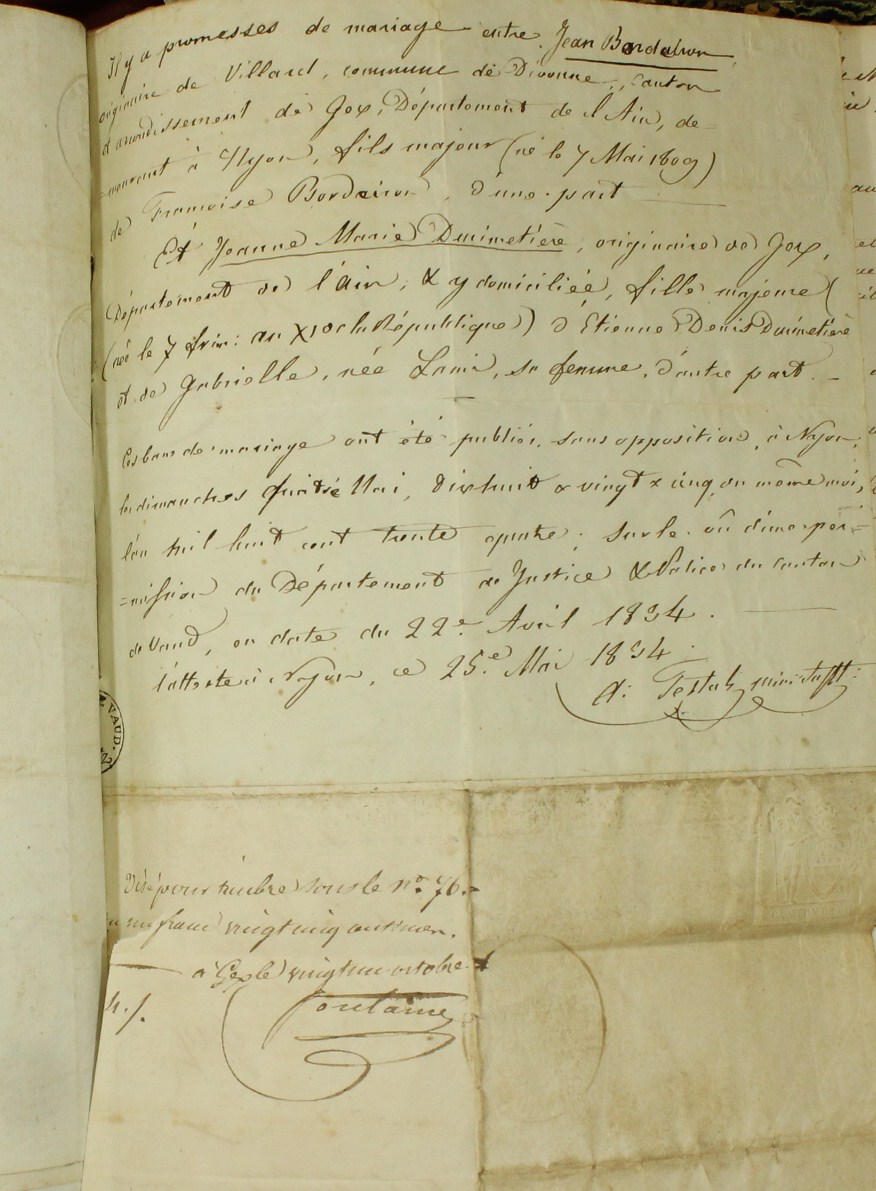 Il y a promesses de mariage entre Jean Bordairon
originaire de Villard, commune de Divonne, Canton
& arrondissement de Gex, Département de l'Ain, de-
=meurant à Nyon, fils majeur (né le 7 Mai 1809)
de Françoise Bordairon, d'une part
Et Jeanne Marie Dunimetière, originaire de Gex,
Département de l'Ain, & y domiciliée, fille majeure (
(née le 7 frim: an XI de la République) d'Etienne Denis Dunimetière
et de Gabrielle, née, sa femme, d'autre part.
Ces bans de mariage ont été publiés, sans opposition, à Nyon,
les dimanches quatre Mai, dix huit & vingt & cinq du même mois,
l'an mil huit cent trente quatre; sur le vû d'une per-
=mission du Département de Justice & Police du canton
de Vaud, en date du 22e. Avril 1834.
l'atteste à Nyon, ce 25.e Mai 1834.
VAUD.
Visé pour timbre sous le no. 76.
un franc vingt cinq centimes.
à Gex le vingt un octobre
4./.
Fontaine